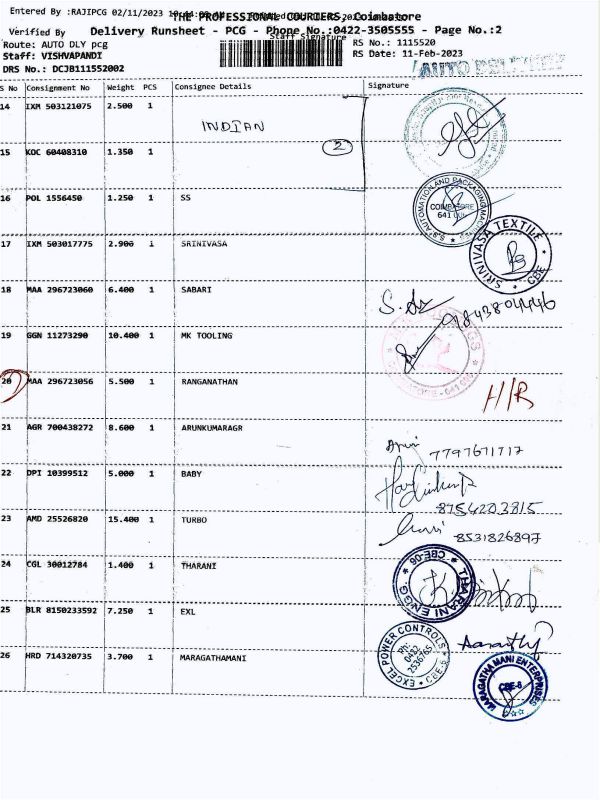 Entered By :RAJIPCG 02/11/2023
THE PROFESSIONAL COURIERS, Coimbatore
Verified By
Delivery Runsheet - PCG - Phone No.:0422-3505555 - Page No.:2
Staff Signature
Route: AUTO DLY pcg
RS No.: 1115520
Staff: VISHVAPANDI
RS Date: 11-Feb-2023
DRS No.: DCJB111552002
AUTO DELIVERY
S No Consignment No Weight PCS Consignee Details Signature
14 IXM 503121075 2.500 1
INDIAN
15 KOC 60408310 1.350 1 2
16 POL 1556450 1.250 1 SS
S.S AUTOMATION AND PACKAGING MACHINES
COIMBATORE
641
17 IXM 503017775 2.900 1 SRINIVASA
SRINIVASA TEXTILE
CBE
18 MAA 296723060 6.400 1 SABARI
9843804446
19 GGN 11273290 10.400 1 MK TOOLING
20 MAA 296723056 5.500 1 RANGANATHAN
H/R
21 AGR 700438272 8.600 1 ARUNKUMARAGR
7797671717
22 DPI 10399512 5.000 1 BABY
8754203815
23 AMD 25526820 15.400 1 TURBO
8531826897
24 CGL 30012784 1.400 1 THARANI
THARANI ENGG
CBE-06
25 BLR 8150233592 7.250 1 EXL
EXCEL POWER CONTROLS
Ph:
0422
2536765
CBE-6
26 HRD 714320735 3.700 1 MARAGATHAMANI
MARAGATHA MANI ENTERPRISES
CBE-6